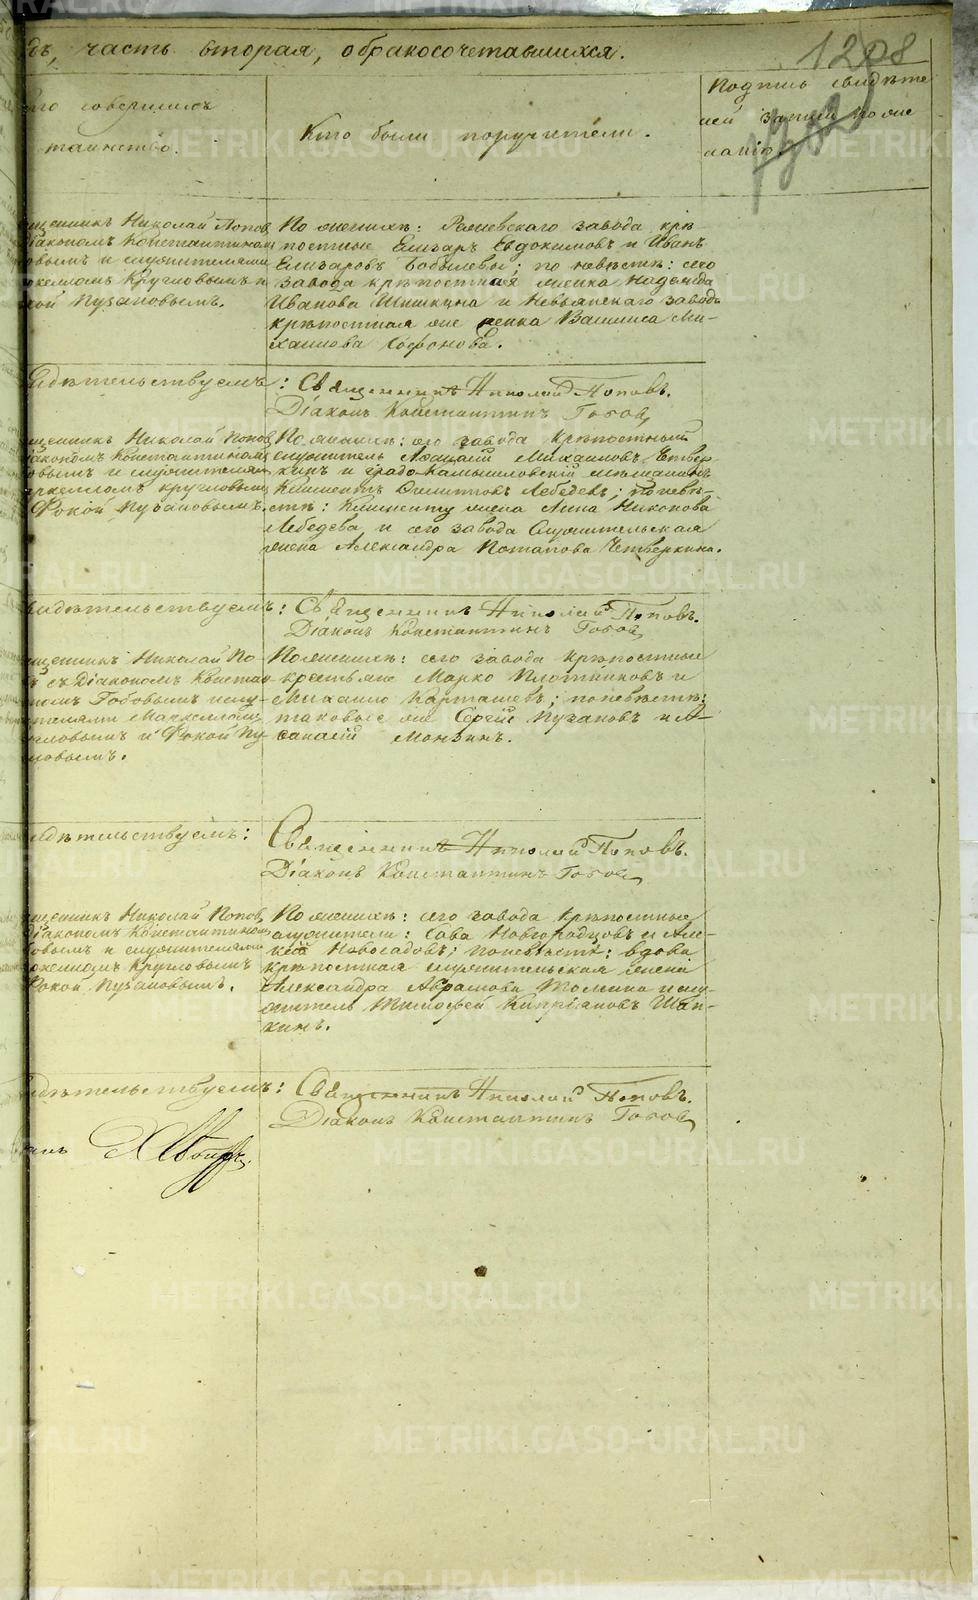 дъ, часть вторая, о бракосочетавшихся.
1208
Кто совершилъ
таинство.
Кто были поручители.
Подпись свидѣте
лей записи по же
ланію.
щенникъ Николай Попов
Діакономъ Константином
овымъ и служителями
Кругловымъ и
кой Пузановымъ.
По женихѣ: завода крѣ
постные Елизаръ Евдокимовъ и Иванъ
Елизаровъ Бобылевы; по невѣстѣ: сего
завода крѣпостная женка Надежда
Иванова Шишкина и Невьянскаго завода
крѣпостная же женка Васишса Ми-
хаилова Сафонова.
идѣтельствуемъ: Священникъ Николай Поповъ.
Діаконъ Константинъ Гобов
щенникъ Николай Попов
Діакономъ Константином
овымъ и служителями
Кругловымъ
Фокой Пузановымъ.
По женихѣ: сего завода крѣпостный
служитель Михаиловъ Четвер-
кинъ и градо Камышловскій мѣщанинъ
Климентъ Лебедевъ; по невѣ-
стѣ: Климента жена Анна Никонова
Лебедева и сего завода служительская
жена Александра Потапова Четверкина.
видѣтельствуемъ: Священникъ Николай Поповъ.
Діаконъ Константинъ Гобов
щенникъ Николай По
въ съ Діакономъ Констан
номъ Гобовымъ и слу-
жителями Маркеломъ
угловымъ и Фокой Пу-
новымъ.
По женихѣ: сего завода крѣпостные
крестьяне Марко Плотниковъ и
Михаило Карташевъ; по невѣстѣ:
таковые же Сергій Пузановъ и А-
Монзинъ.
идѣтельствуемъ: Священникъ Николай Поповъ.
Діаконъ Константинъ Гобов
щенникъ Николай Попов
Діакономъ Константином
овымъ и служителями
Кругловымъ
Фокой Пузановымъ.
По женихѣ: сего завода крѣпостные
служители: Сава Новгородцовъ и Але-
кѣй Новосадовъ; по невѣстѣ: вдова
крѣпостная служительская жена
Александра Аврамова Томина и слу-
житель Тимофей Кипріановъ Шап-
кинъ.
идѣтельствуемъ: Священникъ Николай Поповъ.
Діаконъ Константинъ Гобов
METRIKI.GASO-URAL.RU